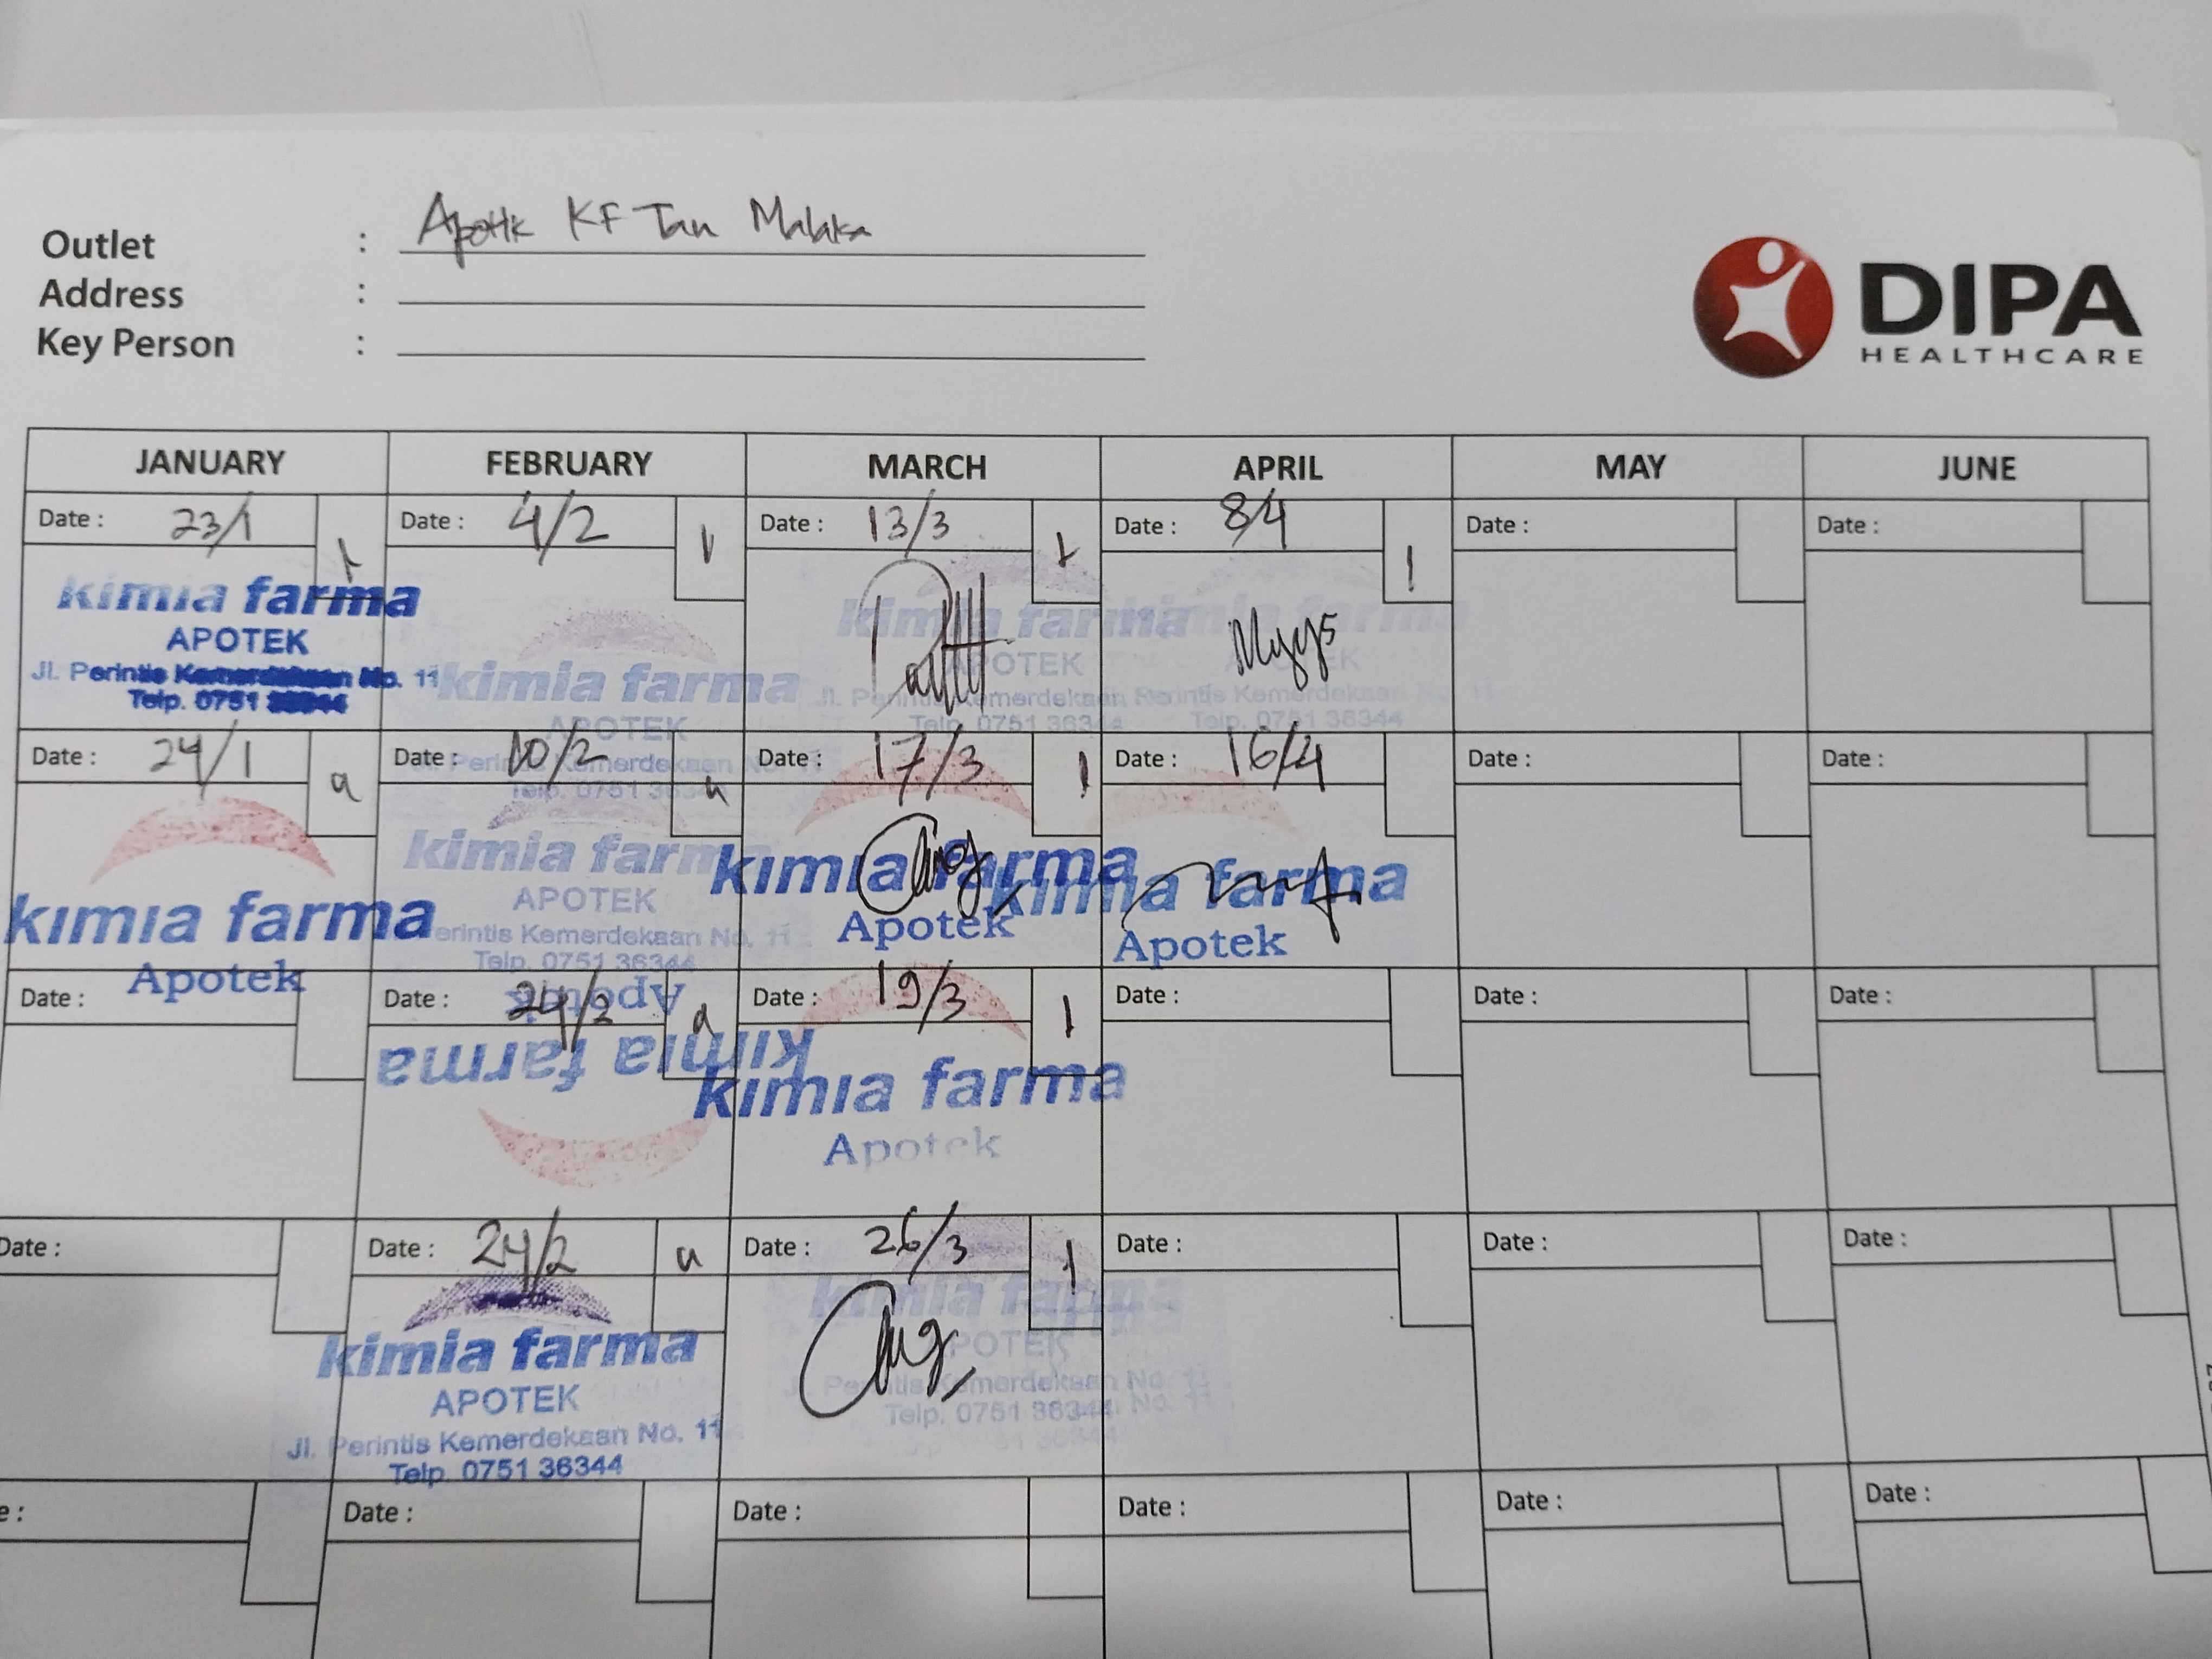 Outlet : Apotik KF Tan Malaka
Address :
Key Person :
DIPA
HEALTHCARE
JANUARY FEBRUARY MARCH APRIL MAY JUNE
Date : 23/1 Date : 4/2 Date : 13/3 Date : 8/4 Date : Date :
kimia farma
APOTEK
Jl. Perintis Kemerdekaan No. 11
Telp. 0751 36344
kimia farma
APOTEK
Perintis Kemerdekaan No. 11
Telp. 0751 36344
kimia farma
APOTEK
Jl. Perintis Kemerdekaan
Telp. 0751 36344
kimia farma
APOTEK
Perintis Kemerdekaan No. 11
Telp. 0751 36344
Date : 24/1 a Date : 10/2 a Date : 17/3 1 Date : 16/4 Date : Date :
kimia farma
Apotek
kimia farma
APOTEK
Perintis Kemerdekaan No. 11
Telp. 0751 36344
kimia farma
Apotek
kimia farma
Apotek
Date : Date : 24/2 a Date : 19/3 1 Date : Date : Date :
kimia farma
Apotek
kimia farma
Apotek
Date : Date : 24/2 a Date : 26/3 1 Date : Date : Date :
kimia farma
APOTEK
Jl. Perintis Kemerdekaan No. 11
Telp. 0751 36344
kimia farma
APOTEK
Perintis Kemerdekaan No. 11
Telp. 0751 36344
e : Date : Date : Date : Date : Date :